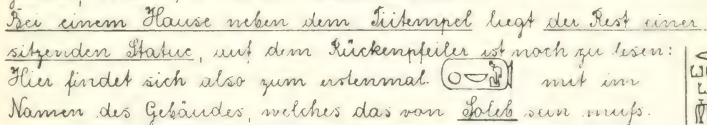 Bei einem Hause neben dem Tiitempel liegt der Rest einer
sitzenden Statue, auf dem Rückenpfeiler ist noch zu lesen:
Hier findet sich also zum erstenmal mit im
Namen des Gebäudes, welches das von Soleb sein muß.